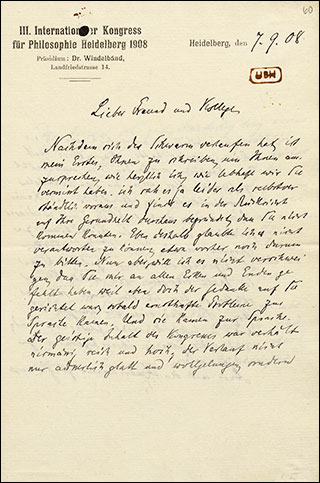 60
III. Internationaler Kongress
für Philosophie Heidelberg 1908
Präsidium: Dr. Windelband,
Landfriedstrasse 14.
Heidelberg, den 7. 9. 08.
Lieber Freund und Kollege,
Nachdem sich der Schwarm verlaufen hat, ist
mein Erstes, Ihnen zu schreiben, um Ihnen aus-
zusprechen, wie herzlich ich, wie lebhaft wir Sie
vermisst haben. Ich sah es ja leider als
voraus und finde es in der Rücksicht
auf Ihre Gesundheit durchaus begründet, dass Sie nicht
kommen konnten. Eben deshalb glaubte ich es nicht
verantworten zu können, etwa vorher noch darum
zu bitten. Nun aber will ich es nicht verschwei-
gen, dass Sie mir an allen Ecken und Enden ge-
fehlt haben, weil eben doch der Gedanke auf Sie
gerichtet war, sobald ernsthafte Probleme zur
Sprache kamen. Und sie kamen zur Sprache.
Der geistige Inhalt des Kongresses war
reich und hoch, der Verlauf nicht
nur äusserlich glatt und wohlgelungen, sondern